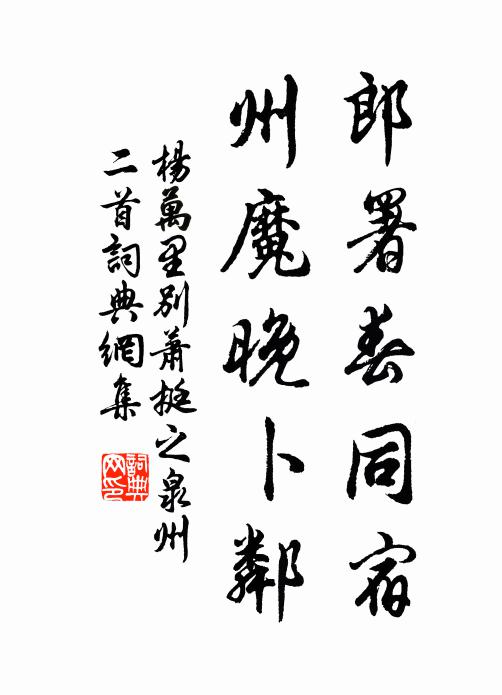 郎署春同宿
州魔晚卜鄰
楊萬里別蕭挺之泉州
二首詞典網集
詞典
网印